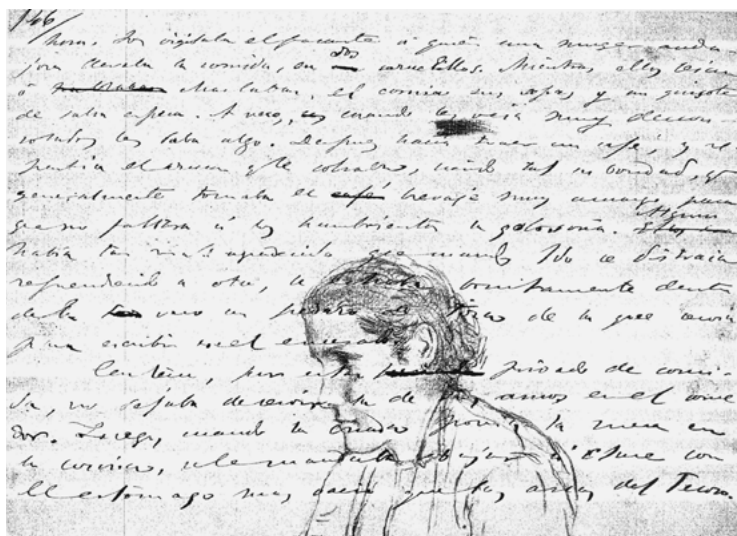 146
hora. Les vigilaba el pasante a quien una muger anda-
josa llevaba la comida, en dos cazuelillas. Mientras ellos leian
ó charlaban, el comia sus sopas y un guisote
de salsa espesa. A veces, cuando los veia muy descon-
solados, les daba algo. Despues hacia traer un café, y re-
partia el y le sobraba, siendo tal su bondad, q
generalmente tomaba el brevage muy amargo para
que no faltára a los hambrientos la golosina. Alguno
habia tan mal agradecido que cuando Ido se distraia
reprendiendo a otro, le echaba bonitamente dentro
de la un pedazo de tiza de la que servia
para escribir en el encerado.
Centeno pero este privado de comi-
da, no dejaba de servir la de sus amos en el come
dor. Luego, cuando la criada ponia la mesa en
la cocina, le mandaban bajar a la clase con
el estomago mas vacio que las arcas del Tesoro.